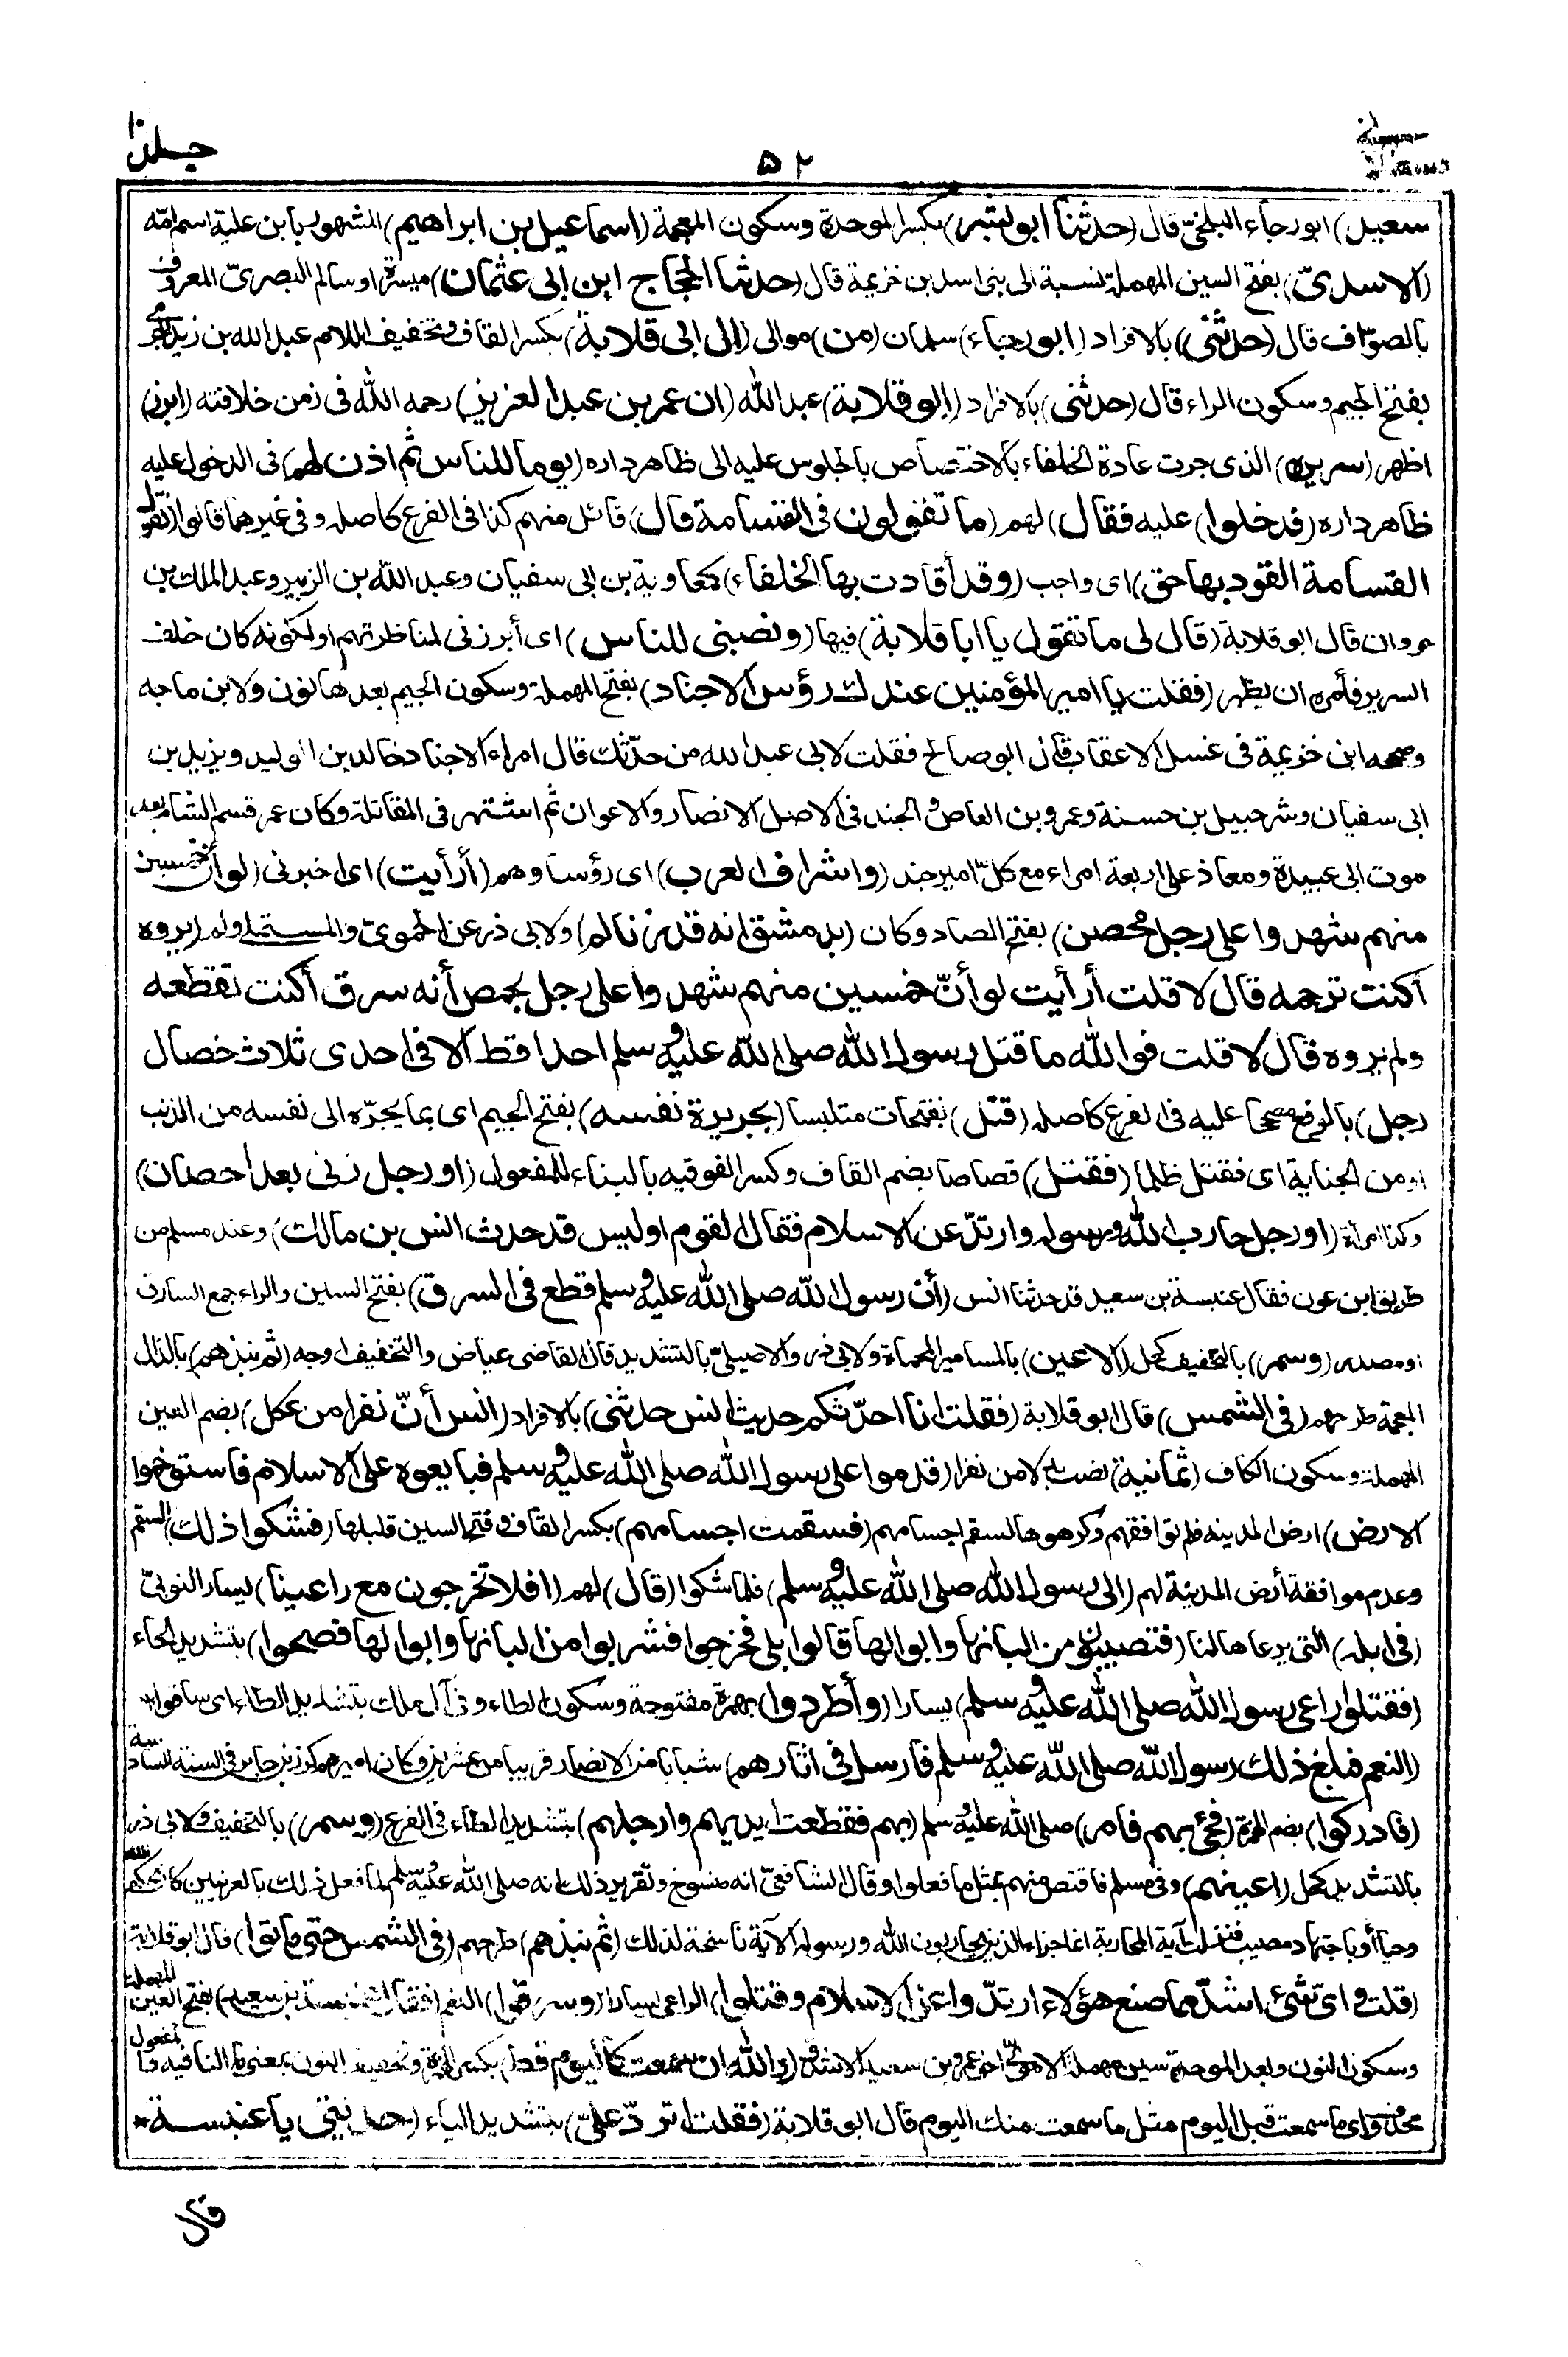 جلد ١٠
٥٢
سعيد) ابو رجاء البلخىّ قال (حدثنا ابو بشر) بكسر الموحدة وسكون المعجمة (اسماعيل بن ابراهيم) المشهور بابن علية اسم امّه
(الاسدىّ) بفتح السين المهملة نسبة الى بنى اسد بن خزيمة قال (حدثنا الحجاج ابن ابى عثمان) ميسرة او سالم البصرىّ المعروف
بالصوّاف قال (حدثنى) بالافراد (ابو رجاء) سلمان (من) موالى (اٰل ابى قلابة) بكسر القاف وتخفيف اللام عبد الله بن زيد الجرمى
بفتح الجيم وسكون الراء قال (حدثنى) بالافراد (ابو قلابة) عبد الله (ان عمر بن عبد العزيز) رحمه الله فى زمن خلافته (ابرز)
اظهر (سريره) الذى جرت عادة الخلفاء بالاختصاص بالجلوس عليه الى ظاهر داره (يوما للناس ثم اذن لهم) فى الدخول عليه
ظاهر داره (فدخلوا) عليه فقال) لهم (ما تقولون فى القسامة قال) قائل منهم كذا فى الفرع كاصله وفى غيرهما قالوا (نقول
القسامة القود بها حق) اى واجب (وقد أقادت بها الخلفاء) كمعاوية بن ابى سفيان وعبد الله بن الزبير وعبد الملك بن
مروان قال ابو قلابة (قال لى ما تقول يا ابا قلابة) فيها (ونصبنى للناس) اى أبرزنى لمناظرتهم او لكونه كان خلف
السرير فأمره ان يظهر (فقلت يا امير المؤمنين عندك رؤس الاجناد) بفتح المهملة وسكون الجيم بعدها نون ولابن ماجه
وصححه ابن خزيمة فى غسل الاعقاب قال ابو صالح فقلت لابى عبد الله من حدّثك قال امراء الاجناد خالد بن الوليد ويزيد بن
ابى سفيان وشرحبيل بن حسنة وعمرو بن العاص والجند فى الاصل الانصار والاعوان ثم اشتهر فى المقاتلة وكان عمر قسم الشام بعد
موت ابى عبيدة ومعاذ على اربعة امراء مع كلّ امير جند (واشراف العرب) اى رؤساوهم (أرأيت) اى اخبرنى (لو أن خمسين
منهم شهدوا على رجل محصن) بفتح الصاد وكان (بدمشق انه قد زنا لم) ولابى ذر عن الحموىّ والمستملى ولم (يروه
أكنت ترجمه قال لا قلت أرأيت لو أنّ خمسين منهم شهدوا على رجل بحمص أنه سرق أكنت تقطعه
ولم يروه قال لا قلت فوالله ما قتل رسول الله صلى الله عليه وسلم احدا قط الا فى احدى ثلاث خصال
رجل) بالرفع مصححا عليه فى الفرع كاصله (قتل) بفتحات متلبسا (بجريرة نفسه) بفتح الجيم اى بما يجرّه الى نفسه من الذنب
او من الجناية اى فقتل ظلما (فقتل) قصاصا بضم القاف وكسر الفوقيه بالبناء للمفعول (او رجل زنى بعد احصان)
وكذا امرأة (او رجل حارب الله ورسوله وارتدّ عن الاسلام فقال القوم اوليس قد حدث انس بن مالك) وعند مسلم من
طريق ابن عون فقال عنبسة بن سعيد قد حدثنا انس (أن رسول الله صلى الله عليه وسلم قطع فى السرق) بفتح السين والراء جمع السارق
او مصدر (وسمر) بالتخفيف كحل (الاعين) بالمسامير المحماة ولابى ذر والاصيلىّ بالتشديد قال القاضى عياض والتخفيف اوجه (ثم نبذهم) بالذال
المعجمة طرحهم (فى الشمس) قال ابو قلابة (فقلت انا احدّثكم حديث انس حدثنى) بالافراد (انس أنّ نفرا من عكل) بضم العين
المهملة وسكون الكاف (ثمانية) نصب بدلا من نفرا (قدموا على رسول الله صلى الله عليه وسلم فبايعوه على الاسلام فاستوخموا
الارض) ارض المدينه فلم توافقهم وكرهوها لسقم اجسامهم (فسقمت اجسامهم) بكسر القاف وفتح السين قبلها (فشكوا ذلك) السقم
وعدم موافقة أرض المدينة لهم (الى رسول الله صلى الله عليه وسلم) فلما شكوا (قال) لهم (افلا تخرجون مع راعينا) يسار النوبىّ
(فى ابله) التى يرعاها لنا (فتصيبون من البانها وابوالها قالوا بلى فخرجوا فشربوا من البانها وابوالها فصحوا) بتشديد الحاء
(فقتلوا راعى رسول الله صلى الله عليه وسلم) يسارا (وأطردوا) بهمزة مفتوحة وسكون الطاء وفى آل ملك بتشديد الطاء اى ساقوا
(النعم فبلغ ذلك رسول الله صلى الله عليه وسلم فارسل فى اثارهم) شبابا من الانصار قريبا من عشرين وكان اميرهم كرز بن جابر فى السنة السادسة
(فادركوا) بضم الهمزة (فجئ بهم فامر) صلى الله عليه وسلم (بهم فقطعت ايديهم وارجلهم) بتشديد الطاء فى الفرع (وسمر) بالتخفيف ولابى ذر
بالتشديد كحل (اعينهم) وفى مسلم فاقتص منهم بمثل ما فعلوا وقال الشافعىّ انه منسوخ وتقرير ذلك انه صلى الله عليه وسلم لما فعل ذلك بالعرنيين كان بحكم الله
وحيا أو باجتهاد مصيب فنزلت آية المحاربة انما جزاء الذين يحاربون الله ورسوله الآية ناسخة لذلك (ثم نبذهم) طرحهم (فى الشمس حتى ماتوا) قال ابو قلابة
(قلت واىّ شئ اشدّ مما صنع هؤلاء ارتدّوا عن الاسلام وقتلوا) الراعى يسارا (وسرقوا) النعم (فقال عنبسة بن سعيد) بفتح العين المهملة
وسكون النون وبعد الموحدة سين مهملة الاموىّ اخو عمرو بن سعيد الاشدق (والله ان سمعت كاليوم قط) بكسر الهمزة وتخفيف النون بمعنى ما النافيه فالمفعول
محذوف اى ما سمعت قبل اليوم مثل ما سمعت منك اليوم قال ابو قلابة (فقلت اتردّ علىّ) بتشديد الياء (حديثى يا عنبسة *
قال